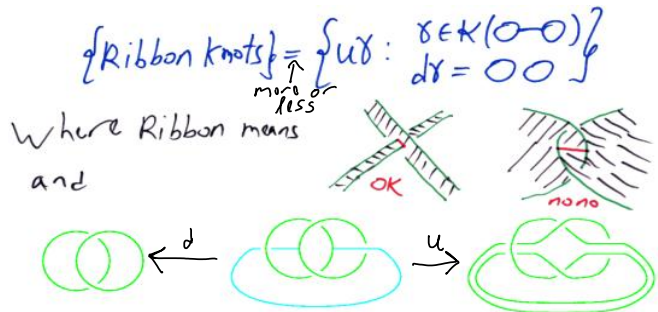 {Ribbon knots} = {uγ : γ∈K(O-O)
dγ = OO}
more or
less
Where Ribbon means
and
OK
no no
d
u